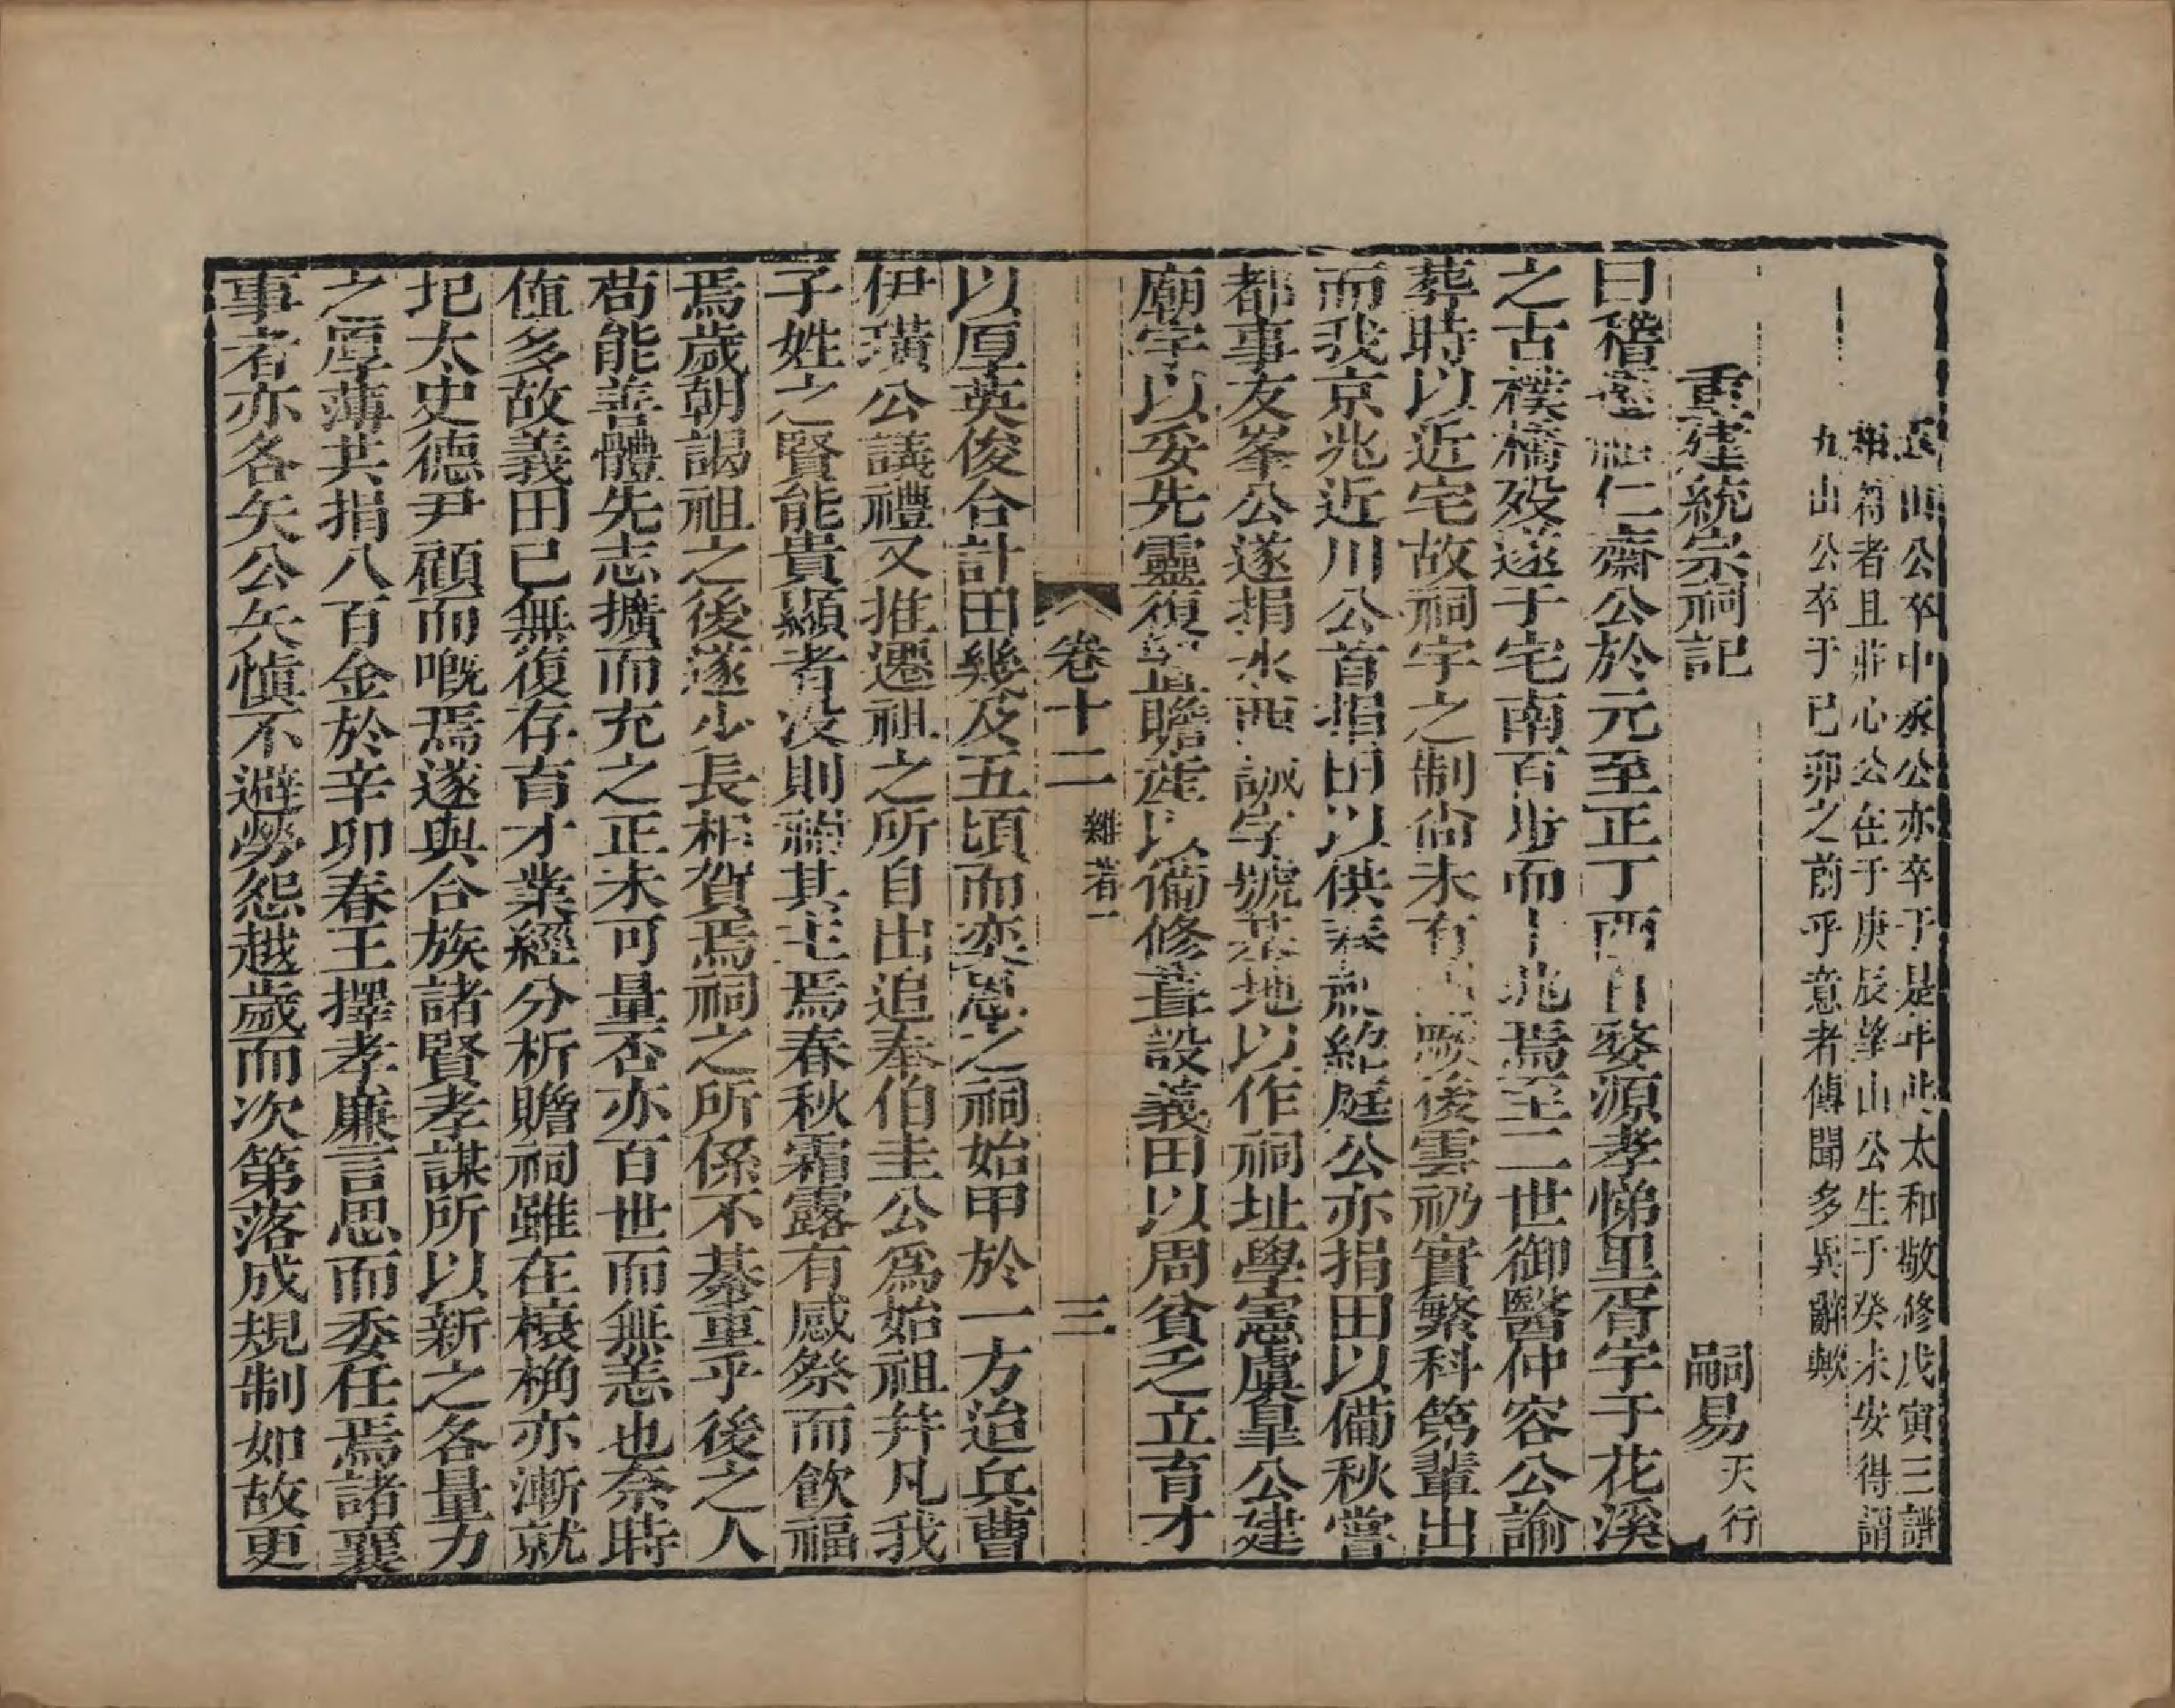 山公卒中丞公亦卒于是年此太和敬修戊寅三譜
符者且非心公在于庚辰峰山公生于癸未安得謂
九山公卒于已卯之前乎意者傳聞多異辭歟
重建統宗祠記 嗣易天行
曰稽遷祖仁齋公於元至正丁酉自婺源孝悌里胥宇于花溪
之古樸橋歿遂于宅南百步而卜兆焉至二世御醫仲容公諭
葬時以近宅故祠宇之制尚未有 厥後雲礽實繁科第輩出
而我京兆近川公首捐田以供春祀紹庭公亦捐田以備秋嘗
都事友峯公遂捐水西誠字號基地以作祠址學憲虞皐公建
廟宇以妥先靈復置贍產以備修葺設義田以周貧乏立育才
卷十二 雜著一 三
以厚英俊合計田幾及五頃而奕恩之祠始甲於一方迨兵曹
伊璜公議禮又推遷祖之所自出追奉伯圭公爲始祖幷凡我
子姓之賢能貴顯者沒則祔其主焉春秋霜露有感祭而飲福
焉歲朝謁祖之後遂少長相賀焉祠之所係不綦重乎後之人
苟能善體先志擴而充之正未可量否亦百世而無恙也奈時
值多故義田已無復存育才業經分析贍祠雖在榱桷亦漸就
圮太史德尹顧而嘅焉遂與合族諸賢孝謀所以新之各量力
之厚薄共捐八百金於辛卯春王擇孝廉言思而委任焉諸襄
事者亦各矢公矢愼不避勞怨越歲而次第落成規制如故更